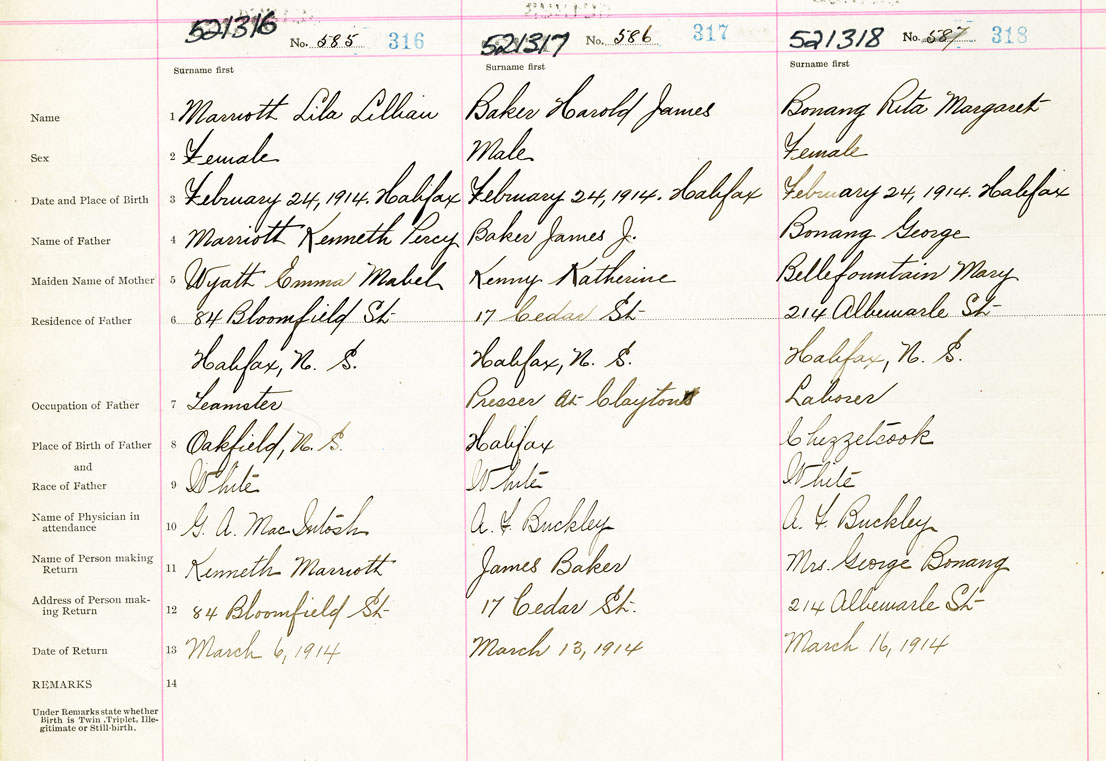 521316 No. 585 316 521317 No. 586 317 521318 No. 587 318
Surname first Surname first Surname first
Name 1 Marriott Lila Lillian Baker Harold James Bonang Rita Margaret
Sex 2 Female Male Female
Date and Place of Birth 3 February 24, 1914. Halifax February 24, 1914. Halifax February 24, 1914. Halifax
Name of Father 4 Marriott Kenneth Percy Baker James J. Bonang George
Maiden Name of Mother 5 Wyatt Emma Mabel Kenny Katherine Bellefountain Mary
Residence of Father 6 84 Bloomfield St 17 Cedar St 214 Albemarle St
Halifax, N. S. Halifax, N. S. Halifax, N. S.
Occupation of Father 7 Teamster Presser at Claytons Laborer
Place of Birth of Father 8 Oakfield, N. S. Halifax Chezzetcook
and
Race of Father 9 White White White
Name of Physician in
attendance 10 G. A. MacIntosh A. F. Buckley A. F. Buckley
Name of Person making
Return 11 Kenneth Marriott James Baker Mrs. George Bonang
Address of Person mak-
ing Return 12 84 Bloomfield St 17 Cedar St. 214 Albemarle St
Date of Return 13 March 6, 1914 March 13, 1914 March 16, 1914
REMARKS 14
Under Remarks state whether
Birth is Twin, Triplet, Ille-
gitimate or Still-birth.